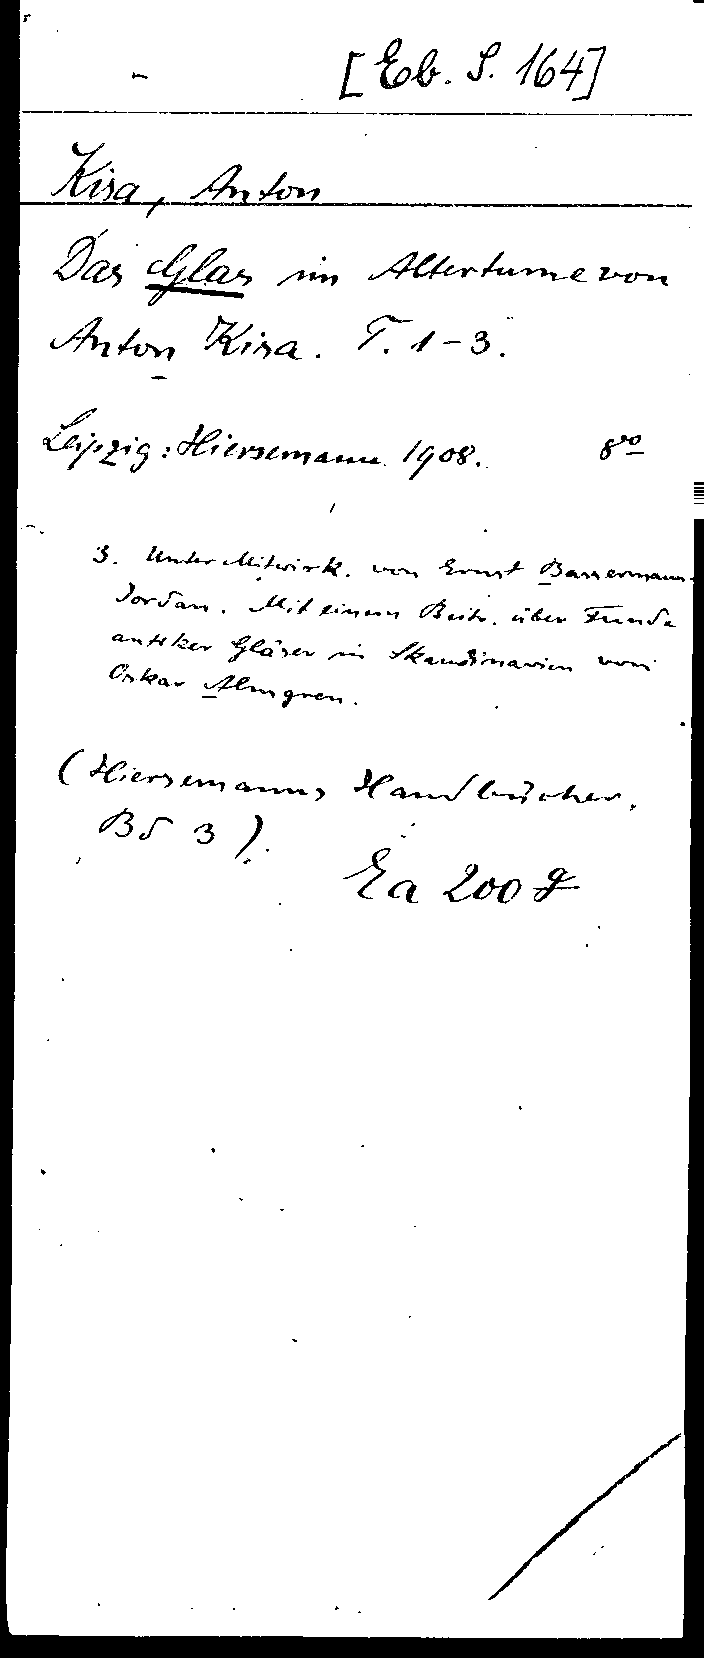 [Eb. S. 164]
Kisa, Anton
Das Glas im Altertume von
Anton Kisa. T. 1-3.
Leipzig: Hiersemann 1908. 8º
3. Unter Mitwirk. von Ernst Bassermann-
Jordan. Mit einem Beitr. über Funde
antiker Gläser in Skandinavien von
Oskar Almgren.
(Hiersemanns Handbücher.
Bd 3).
Ea 200 g